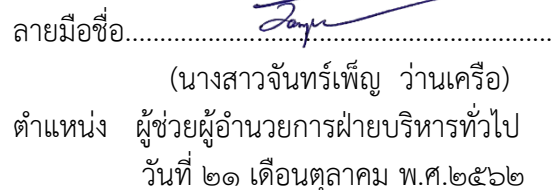 ลายมือชื่อ...........................................................
(นางสาวจันทร์เพ็ญ ว่านเครือ)
ตำแหน่ง ผู้ช่วยผู้อำนวยการฝ่ายบริหารทั่วไป
วันที่ ๒๑ เดือนตุลาคม พ.ศ.๒๕๖๒